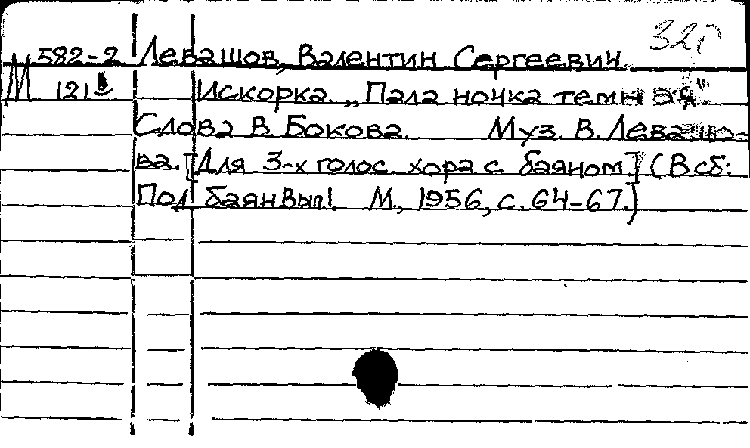 32г
М 582-2 Левашов, Валентин Сергеевич
121
Искорка. „Пала ночка темная".
Слова В. Бокова. Муз. В. Левашо-
ва. [Для 3-х голос. хора с баяном.] (В сб:
Под баян Вып1. М., 1956, с. 64-67.)